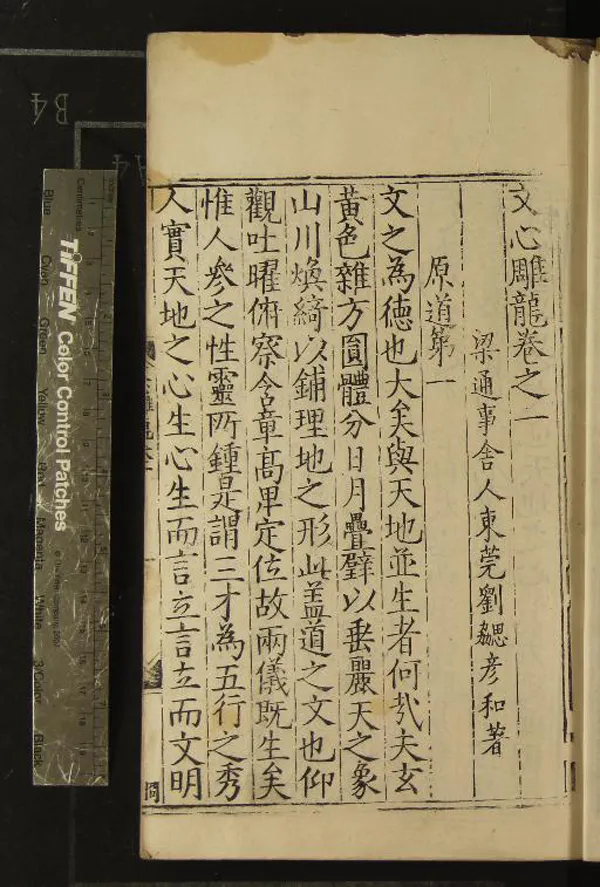 文心雕龍卷之一
梁通事舍人東莞劉勰彦和著
原道第一
文之為德也大矣與天地並生者何㢤夫玄
黃色雜方圓體分日月疊璧以垂麗天之象
山川煥綺以鋪理地之形此盖道之文也仰
觀吐曜俯察含章髙卑定位故兩儀既生矣
惟人參之性靈所鍾是謂三才為五行之秀
人實天地之心生心生而言立言立而文明
B4
A4
TIFFEN Color Control Patches
Centimetres
Blue
Cyan
Green
Yellow
Red
Magenta
White
3/Color
Black